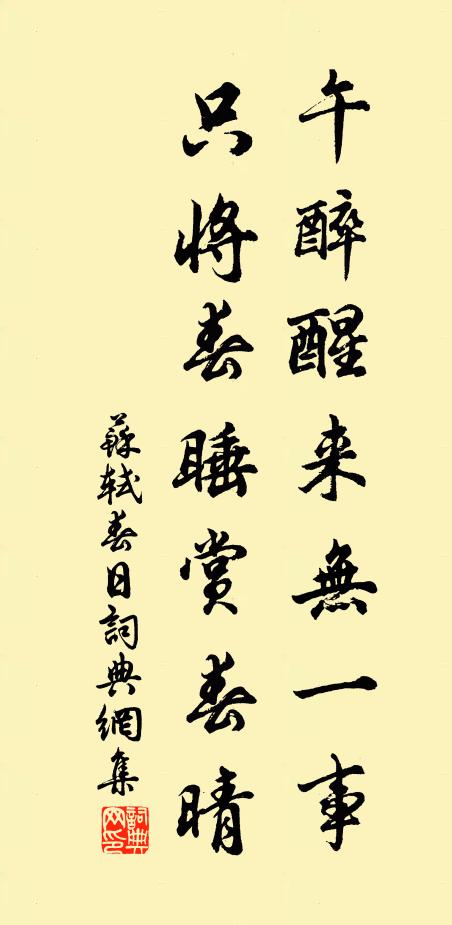 午醉醒来無一事
只將春睡賞春晴
蘇軾春日詞典網集
詞典网印